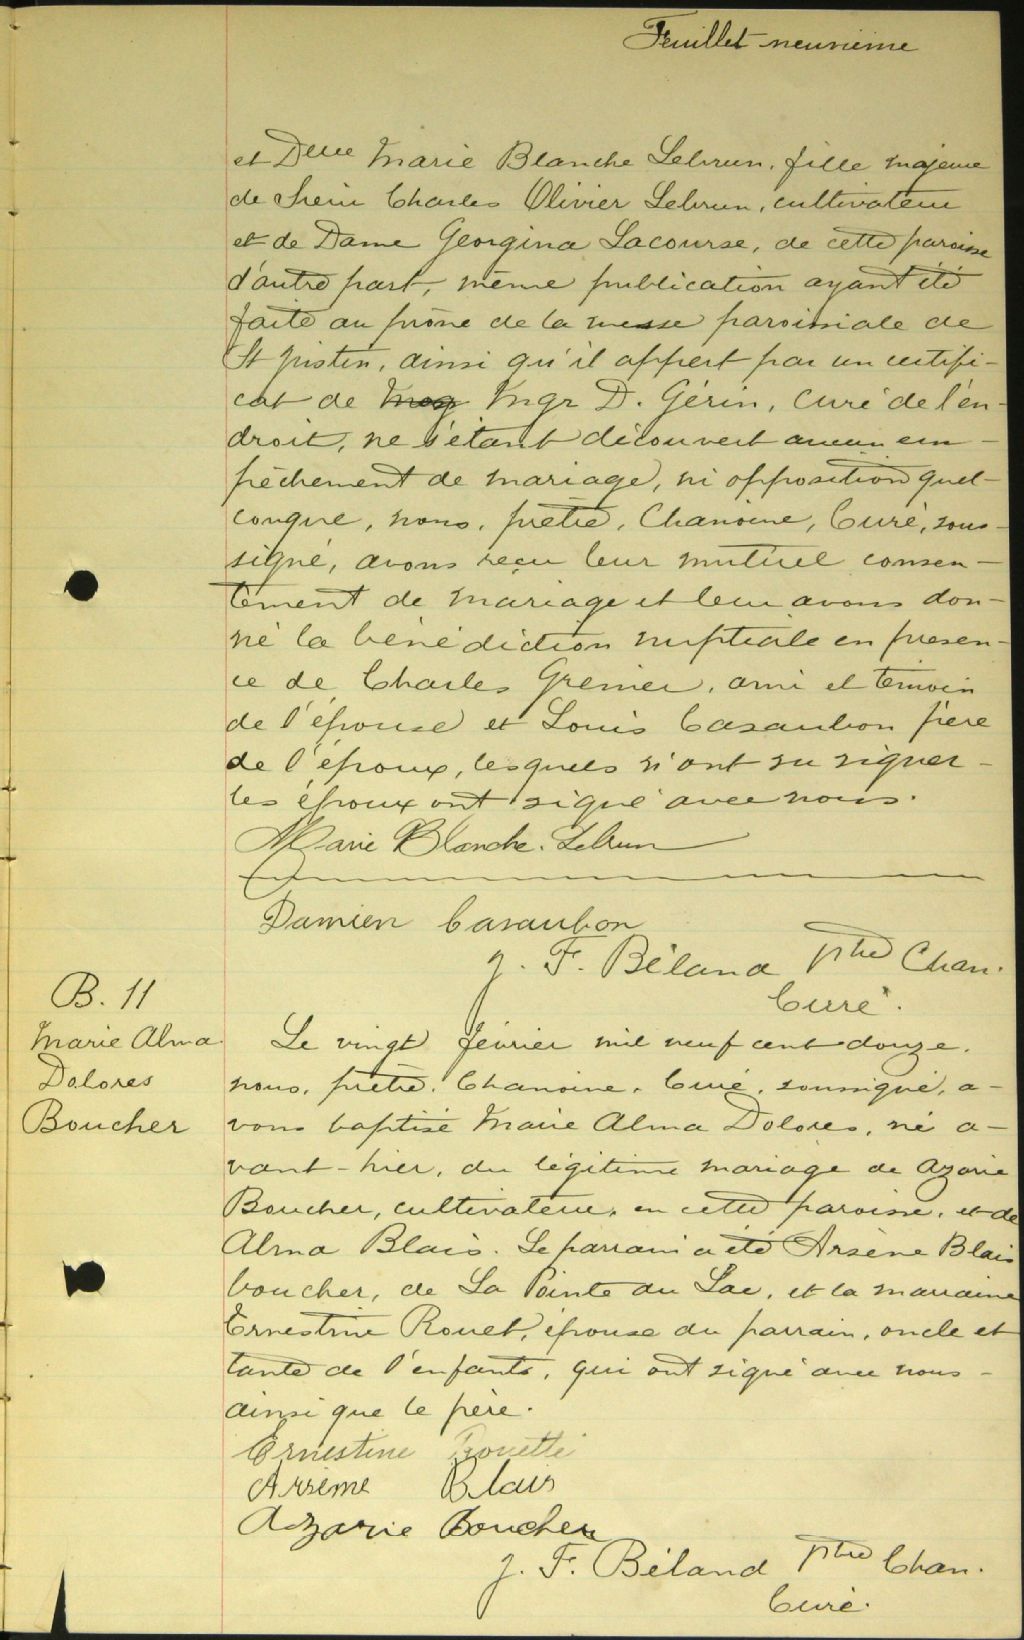 Feuillet neuvième
et Delle Marie Blanche Lebrun, fille majeure
de Sieur Charles Olivier Lebrun, cultivateur
et de Dame Georgina Lacourse, de cette paroisse
d'autre part, même publication ayant été
faite au prône de la messe paroissiale de
St Justin, ainsi qu'il appert par un certifi-
cat de Mgr D. Gérin, Curé de l'en-
droit, ne s'étant découvert aucun em-
pêchement de mariage, ni opposition quel-
conque, nous, prêtre, Chanoine, Curé, sous-
signé, avons reçu leur mutuel consen-
tement de mariage et leur avons don-
né la bénédiction nuptiale en présen-
ce de Charles Grenier, ami et témoin
de l'épouse et Louis Casaubon frère
de l'époux, lesquels n'ont su signer -
les époux ont signé avec nous.
Marie Blanche Lebrun
Damien Casaubon
J. F. Béland Ptre Chan.
Curé.
B. 11
Marie Alma
Dolores
Boucher
Le vingt février mil neuf cent douze,
nous, prêtre, Chanoine, Curé, soussigné, a-
vons baptisé Marie Alma Dolores, né a-
vant-hier, du légitime mariage de Azarie
Boucher, cultivateur, en cette paroisse, et de
Alma Blais. Le parrain a été Arsène Blais
boucher, de La Pointe du Lac, et la marraine
Ernestine Rouet, épouse du parrain, oncle et
tante de l'enfants, qui ont signé avec nous -
ainsi que le père.
Ernestine Rouette
Arseme Blais
Azarie Boucher
J. F. Béland Ptre Chan.
Curé.